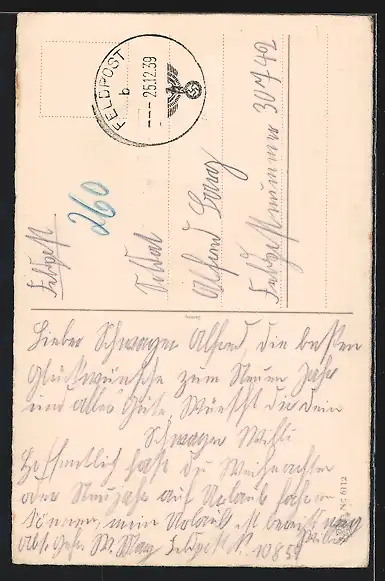 FELDPOST
b
--- 25.12.39
Feldpost
260
Soldat
Alfred
Feldpostnummer 30742
Lieber Schwager Alfred, die besten
Glückwünsche zum Neuen Jahr
und alles Gute, Wünscht dir dein
Schwager Willi
Hoffentlich hast du Weihnachten
oder Neujahr auf Urlaub fahren
können, mein Urlaub ist bereits
Abs. Feldpost N. 10859
No 6112